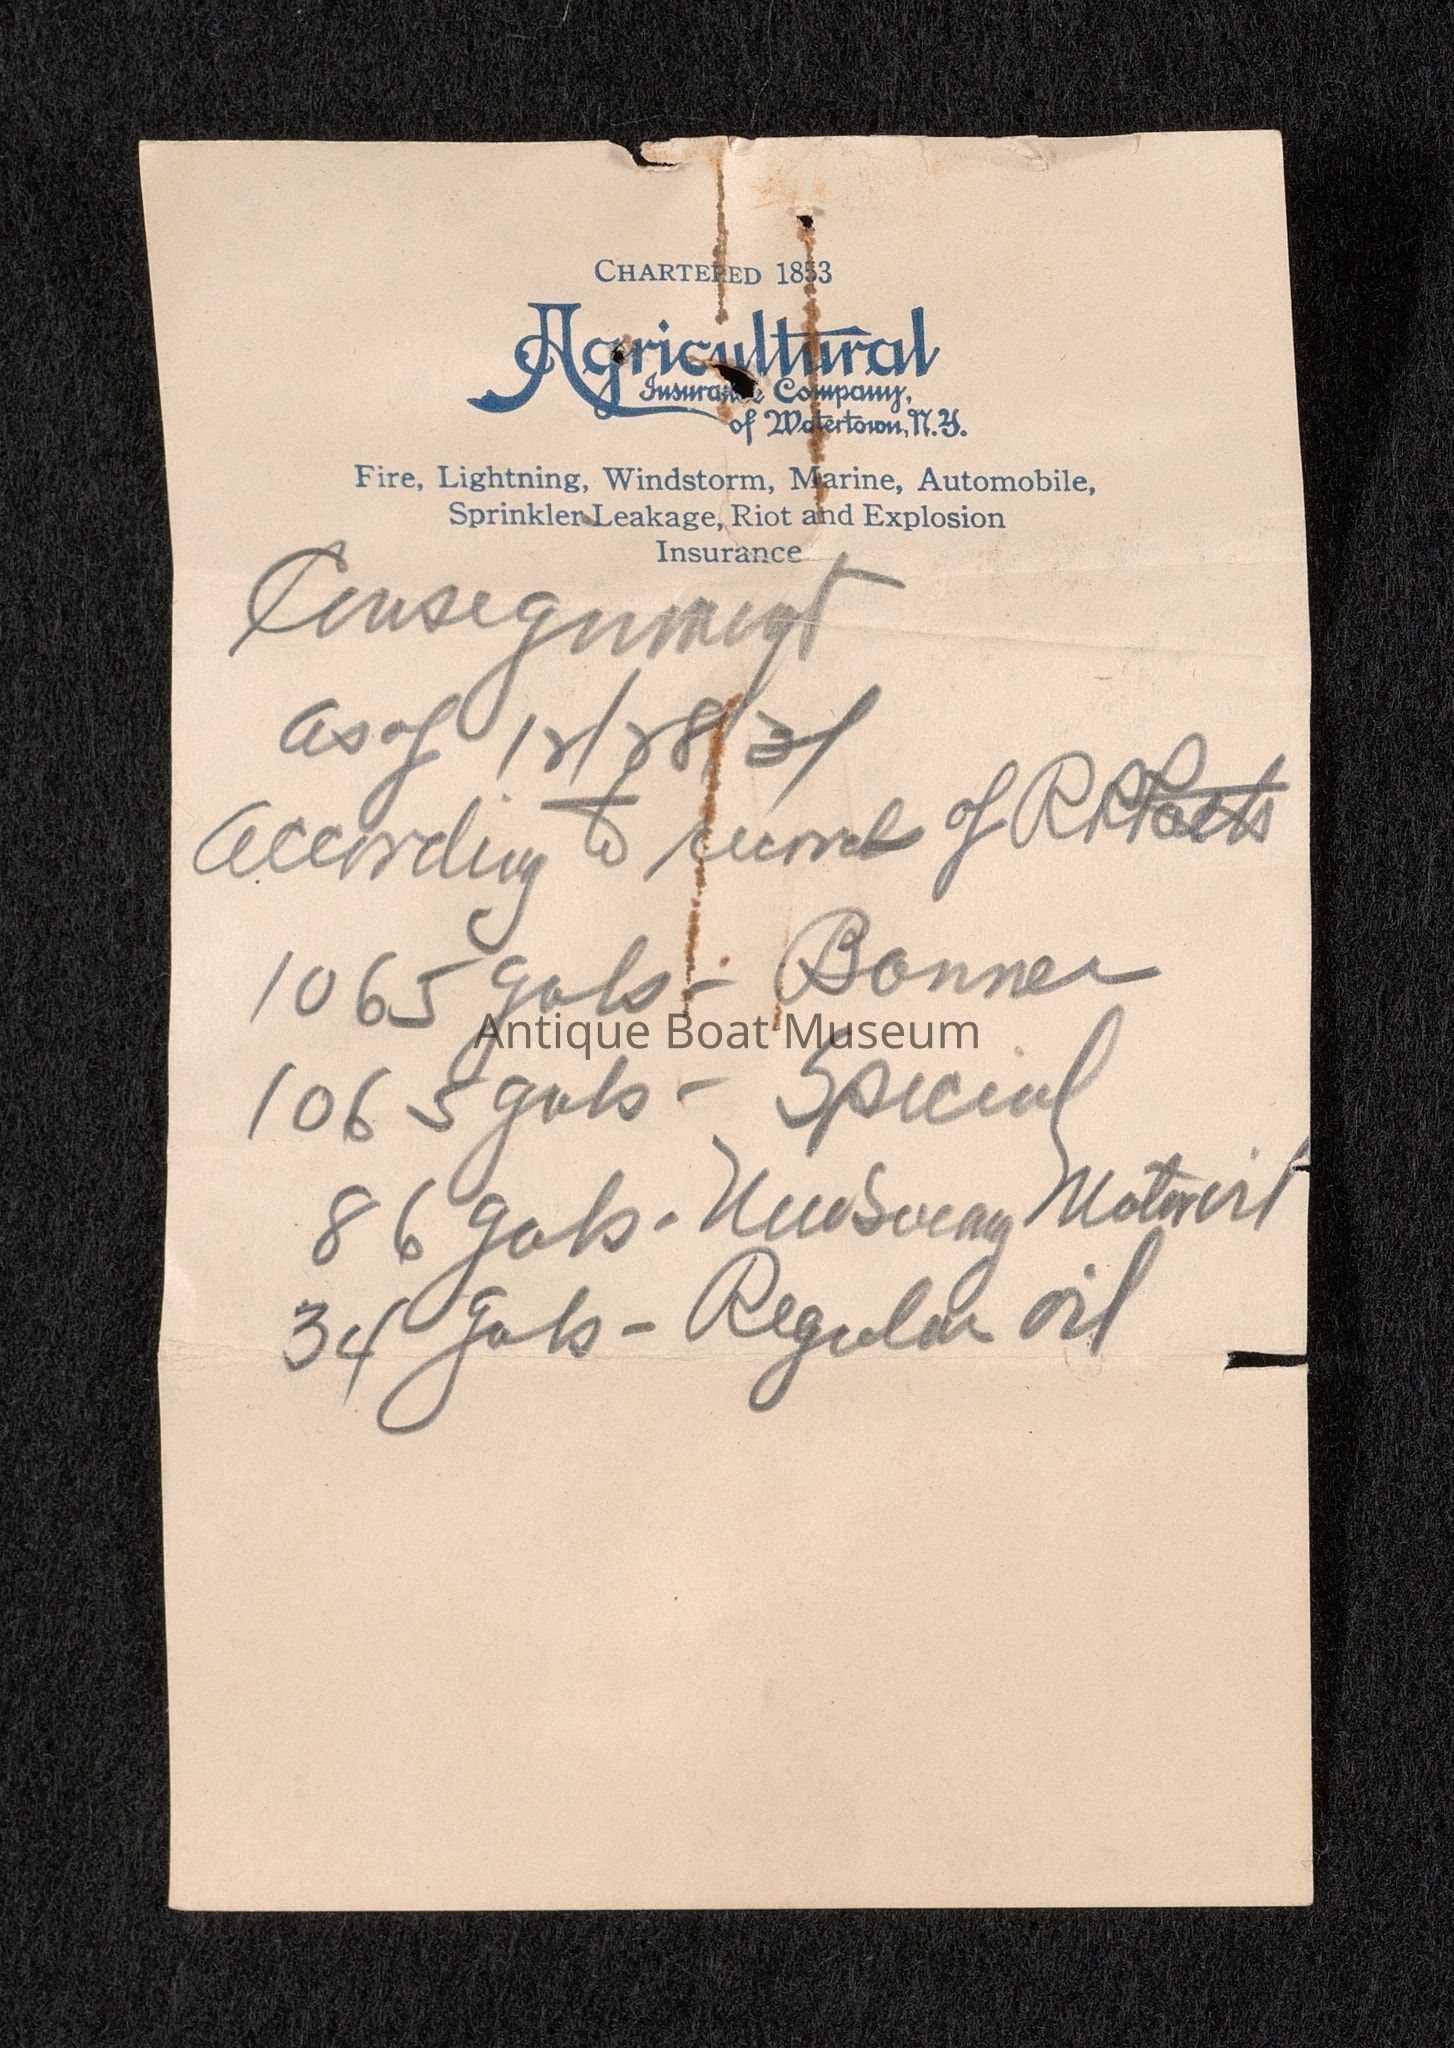 CHARTERED 1853
Agricultural
Insurance Company,
of Watertown, N.Y.
Fire, Lightning, Windstorm, Marine, Automobile,
Sprinkler Leakage, Riot and Explosion
Insurance
Consegnment
as of 12/28/31
According to record of R R
1065 gals - Bonner
Antique Boat Museum
1065 gals - Special
86 gals - Motor oil
34 gals - Regular oil